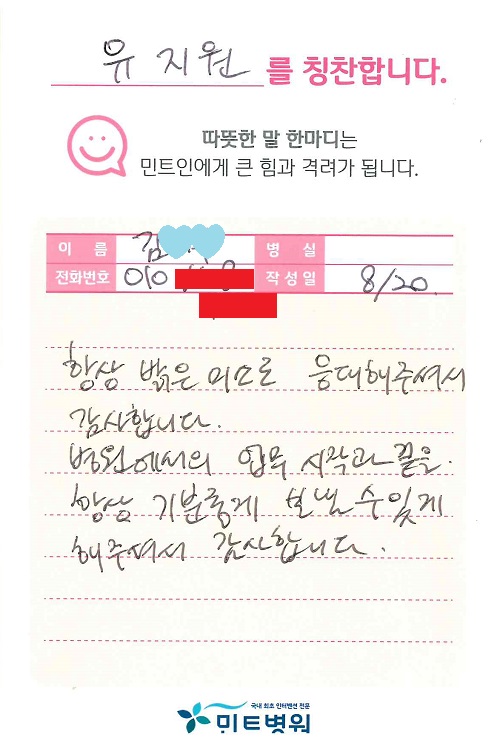 유지원 를 칭찬합니다.
따뜻한 말 한마디는
민트인에게 큰 힘과 격려가 됩니다.
이 름 김 병 실
전화번호 010 작성일 8/20.
항상 밝은 미소로 응대해주셔서
감사합니다.
병원에서의 업무 시작과 끝을
항상 기분좋게 보낼 수 있게
해주셔서 감사합니다.
국내 최초 인터벤션 전문
민트병원